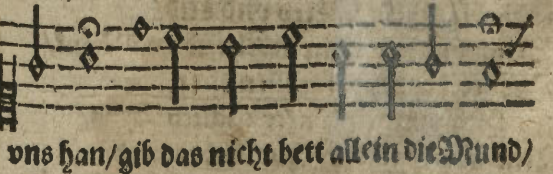 vns han/gib das nicht bett allein die Mund/